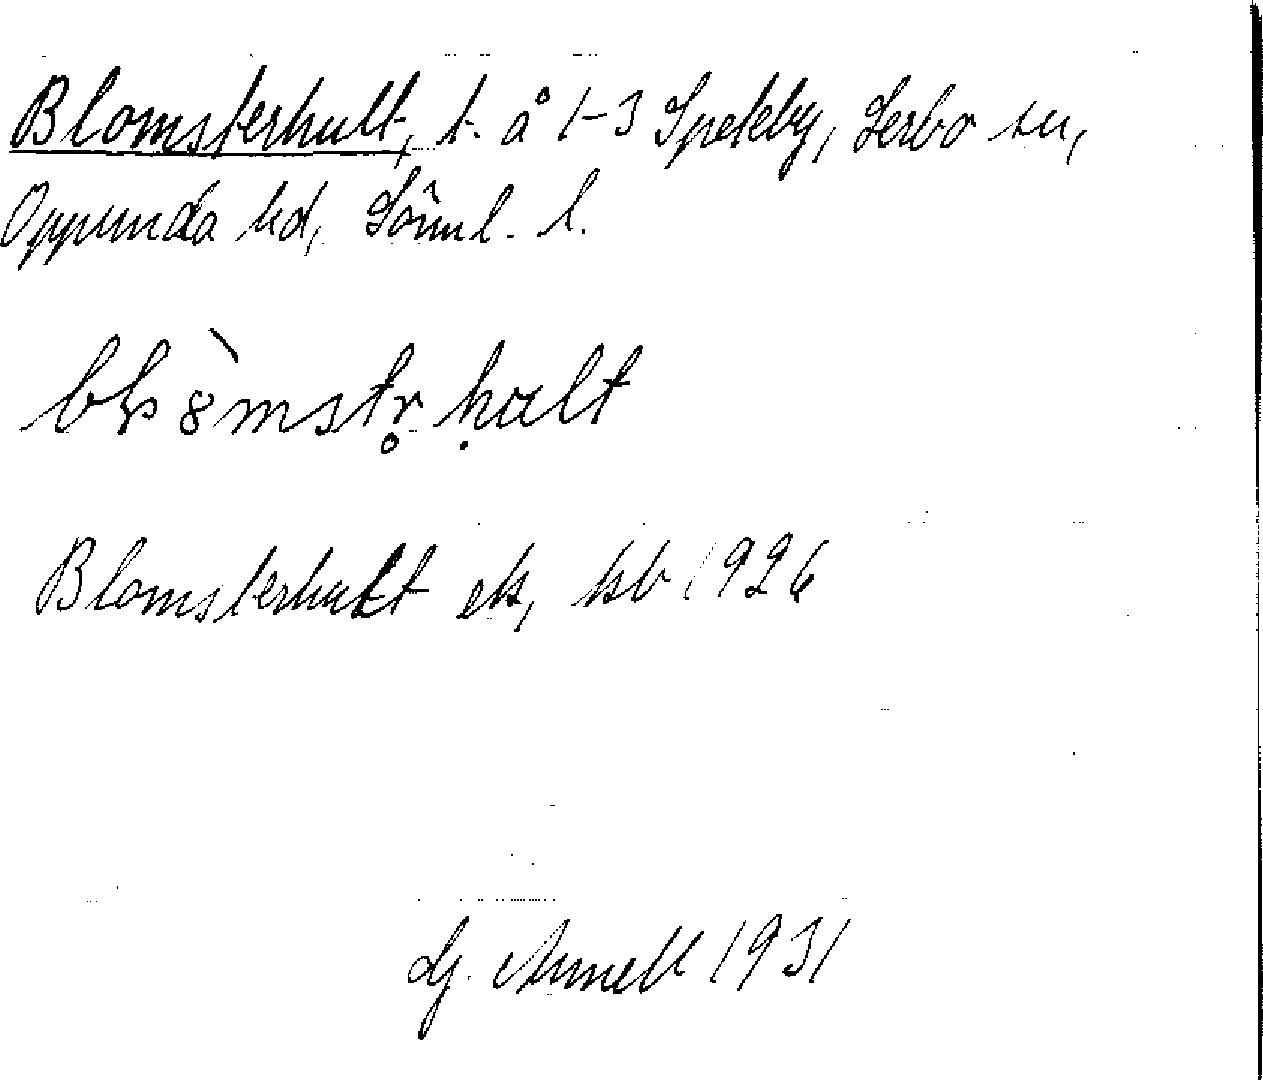 Blomsterhult, t. å 1-3 Spekeby, Lerbo sn,
Oppunda hd, Sörml. l.
Blomsterhult ek, kb 1926
Arnell 1931